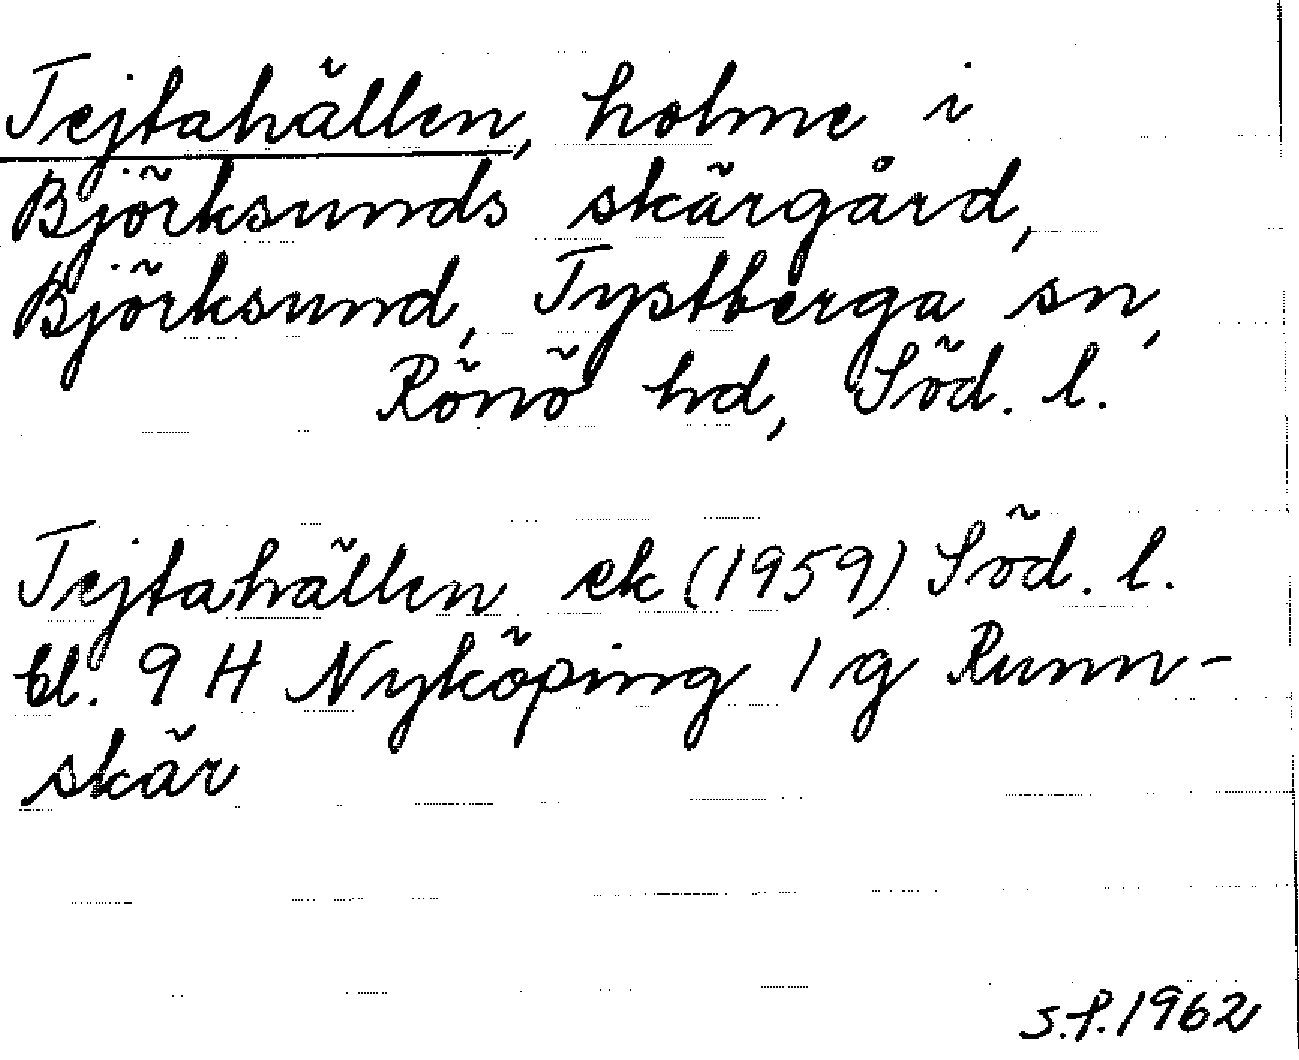 Tejtahällen, holme i
Björksunds skärgård,
Björksund, Tystberga sn,
Rönö hd, Söd. l.
Tejtahällen ek (1959) Söd. l.
bl. 9 H Nyköping 1 g Runn-
skär
S.P. 1962